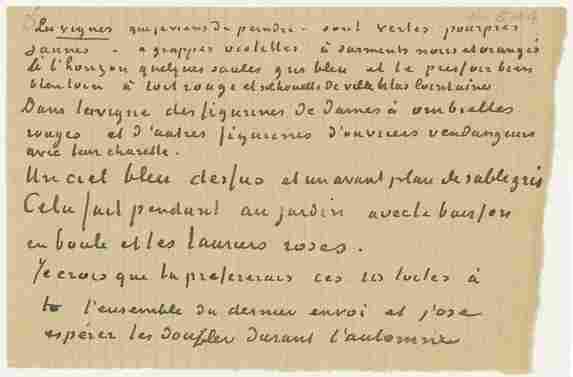 Les vignes que je viens de peindre sont vertes pourpres
jaunes à grappes violettes à sarments noirs et orangés
à l'horizon quelques saules gris bleu et le pressoir bien
bien loin à toit rouge et silhouette de ville lilas lointaine
Dans la vigne des figurines de dames à ombrelles
rouges et d'autres figurines d'ouvriers vendangeurs
avec leur charette.
Un ciel bleu dessus et un avant plan de sable gris
Cela fait pendant au jardin avec le buisson
en boule et les lauriers roses.
Je crois que tu prefereras ces 10 toiles à
l'ensemble du dernier envoi et j'ose
espérer les doubler durant l'automne